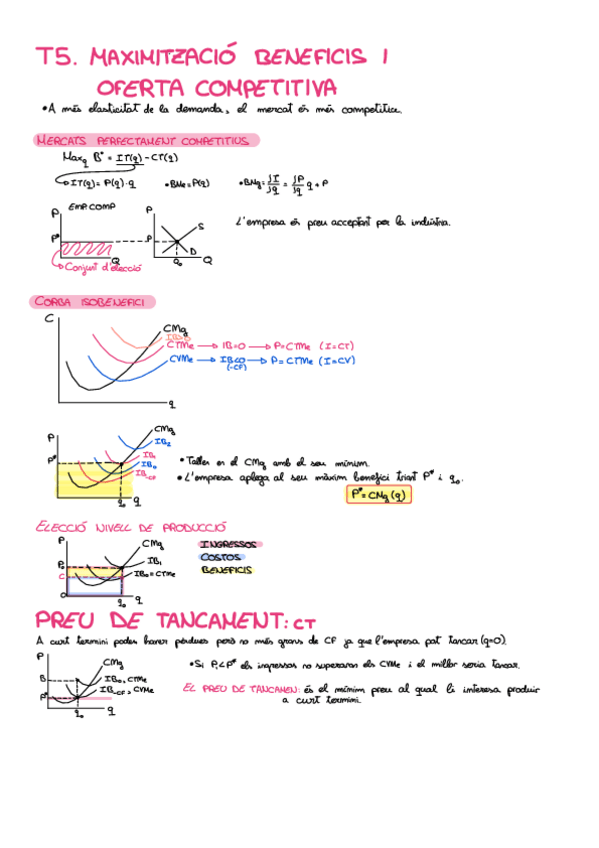 T5. MAXIMITZACIÓ BENEFICIS I
OFERTA COMPETITIVA
• A més elasticitat de la demanda, el mercat és més competitiu.
MERCATS PERFECTAMENT COMPETITIUS
Max_q B° = IT(q) - CT(q)
IT(q) = P(q)·q • BMe = P(q) • BMg = ∂I/∂q = ∂P/∂q q + P
P EMP.COMP P
P* P S
D
Q q₀ Q
L'empresa és preu acceptant per la indústria.
Conjunt d'elecció
CORBA ISOBENEFICI
C
CMg
IB>0
CTMe → IB=0 → P=CTMe (I=CT)
CVMe → IB<0 (-CF) → P=CTMe (I=CV)
q
P CMg
IB₂
P* IB₁
IB₀
IB-CF
q₀ q
• Tallen en el CMg amb el seu mínim.
• L'empresa aplega al seu màxim benefici triant P* i q₀.
P* = CMg(q)
ELECCIÓ NIVELL DE PRODUCCIÓ
P CMg
INGRESSOS
COSTOS
BENEFICIS
IB₁
C IB₀=CTMe
0 q₀ q
PREU DE TANCAMENT: CT
A curt termini poden haver pèrdues però no més grans de CF ja que l'empresa pot tancar (q=0).
P CMg
B IB₀, CTMe
P* IB-CF, CVMe
q₀ q
• Si P₁<P* els ingressos no superaran els CVMe i el millor seria tancar.
EL PREU DE TANCAMEN: és el mínim preu al qual li interesa produir
a curt termini.